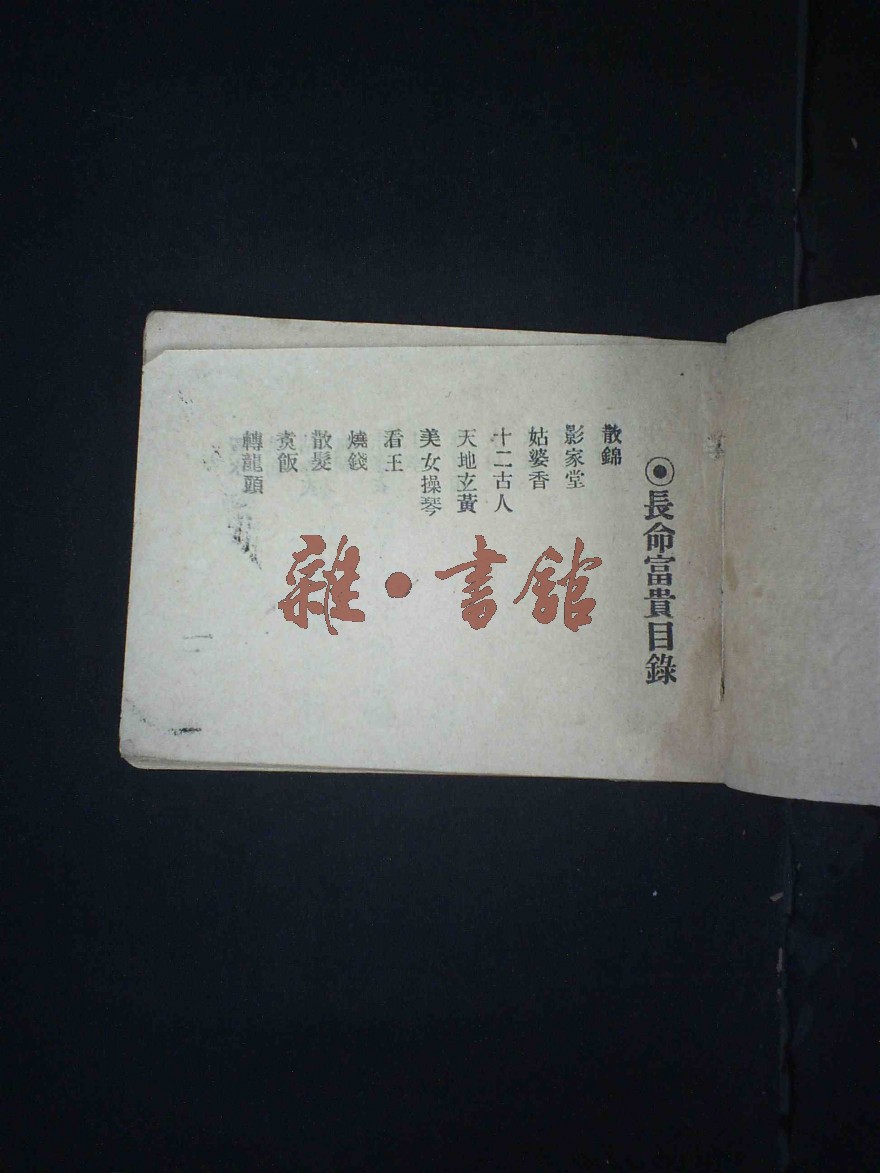 ◉長命富貴目錄
散錦
影家堂
姑婆香
十二古人
天地玄黃
美女操琴
看王
燒錢
散髮
煑飯
轉龍頭
一
雜·書館